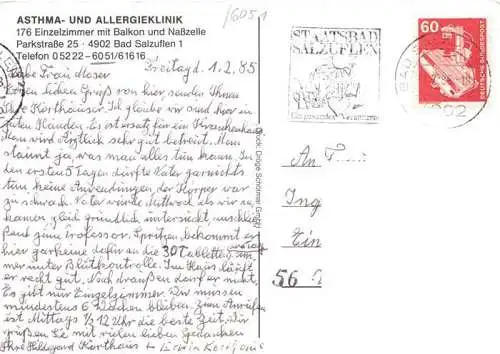 ASTHMA- UND ALLERGIEKLINIK
176 Einzelzimmer mit Balkon und Naßzelle
Parkstraße 25 · 4902 Bad Salzuflen 1
Telefon 05222 - 6051/61616
16051
Freitag d. 1.2.85
Liebe Frau Moser
einen lieben Gruß von hier senden Ihnen
Ihre Korthäuser. Ich glaube wir sind hier in
guten Händen. Es ist ersatz für ein Krankenhaus.
Man wird Ärztlich sehr gut betreut. Man
staunt ja, was man alles tun kann. In
den ersten 5 Tagen dürfte Vater garnichts
tun keine Anwendungen der Körper war
zu schwach. Vater wurde Mittwoch als wir
kamen gleich gründlich untersucht
zum Professor. Spritzen bekommt er
hier garkeine dafür an die 30 Tabletten am Tag
immer unter Blutkontrolle. Im Haus läuft
er recht gut. Nach draußen darf er nicht.
Es gibt nur Einzelzimmer. Wir müssen
mindestens 6 Wochen bleiben. Zum Anrufen
ist Mittags ½ 12 Uhr die beste Zeit. Wir
grüßen Sie mit vielen lieben Gedanken
Ihre Hildegard Korthaus + Erwin Korthaus
STAATSBAD
SALZUFLEN
60
DEUTSCHE BUNDESPOST
BAD S
4902
An
Ing
Ein
56